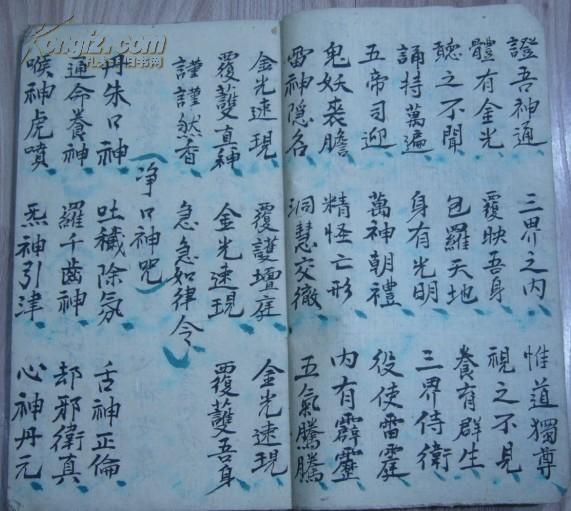 證吾神通 三界之内 惟道獨尊
體有金光 覆映吾身 視之不見
聽之不聞 包羅天地 養育群生
誦持萬遍 身有光明 三界侍衛
五帝司迎 萬神朝禮 役使雷霆
鬼妖喪膽 精怪亡形 内有霹靂
雷神隐名 洞慧交徹 五氣騰騰
金光速現 覆護壇庭 金光速現
覆護真神 金光速現 覆護吾身
謹謹然香 急急如律令
(净口神咒)
丹朱口神 吐穢除氛 舌神正倫
通命養神 羅千齒神 却邪衛真
喉神虎噴 炁神引津 心神丹元
Kongfz.com